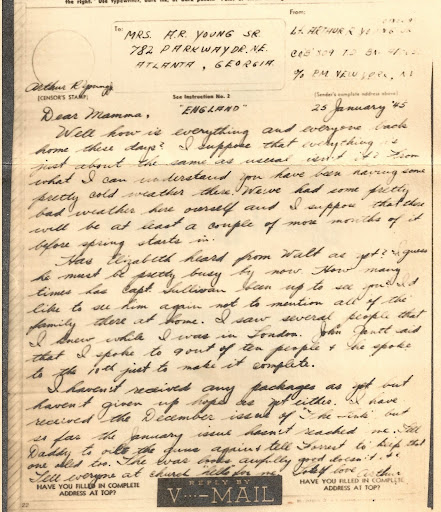 To:
MRS. A.R. YOUNG SR
782 PARKWAY DR. N.E.
ATLANTA, GEORGIA
From:
Lt. ARTHUR R YOUNG JR
% P.M. NEW YORK, N.Y.
Arthur R Young
(CENSOR'S STAMP)
See Instruction No. 2
(Sender's complete address above)
"ENGLAND"
25 January '45
Dear Mamma,
Well how is everything and everyone back
home these days? I suppose that everything is
just about the same as usual isn't it? From
what I can understand you have been having some
pretty cold weather there. We've had some pretty
bad weather here ourself and I suppose that there
will be at least a couple of more months of it
before spring starts in.
Has Elizabeth heard from Walt as yet? I guess
he must be pretty busy by now. How many
times has Capt. Sullivan been up to see you? I'd
like to see him again not to mention all of the
family there at home. I saw several people that
I knew while I was in London. John said
that I spoke to 9 out of ten people & he spoke
to the 10th just to make it complete.
I haven't received any packages as yet but
haven't given up hope as yet either. I have
received the December issue of "The Link" but
so far the January issue hasn't reached me. Tell
Daddy to write the guys again & tell Forrest to keep that
one oiled too. The war looks awfully good doesn't it.
Tell everyone at church "Hello for me". Lots of love, Arthur
HAVE YOU FILLED IN COMPLETE
ADDRESS AT TOP?
REPLY BY
V···—MAIL
HAVE YOU FILLED IN COMPLETE
ADDRESS AT TOP?